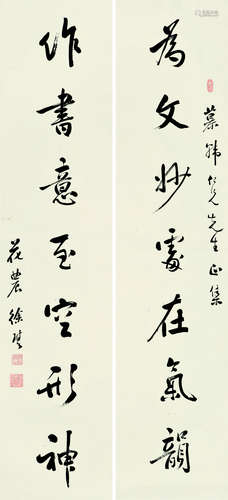 為文妙處在氣韻
慕韓仁兄先生正集
作書意至空形神
花農徐琪